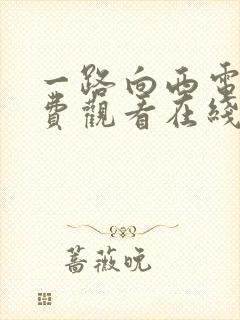 一路向西電
費觀看在綫
蔷薇晥